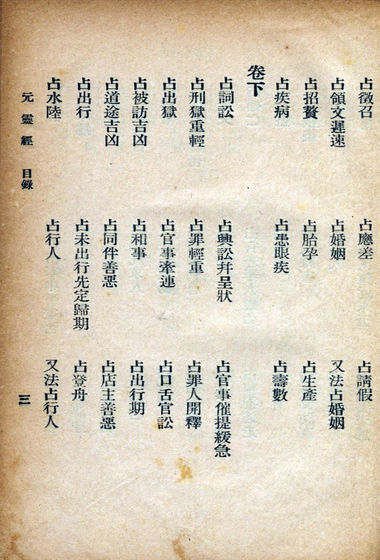 占徵召 占應差 占請假
占領文遲速 占婚姻 又法占婚姻
占招贅 占胎孕 占生產
占疾病 占患眼疾 占壽數
卷下
占詞訟 占興訟幷呈狀 占官事催提緩急
占刑獄重輕 占罪輕重 占罪人開釋
占出獄 占官事牽連 占口舌官訟
占被訪吉凶 占和事 占出行期
占道途吉凶 占同伴善惡 占店主善惡
占出行 占未出行先定歸期 占登舟
占水陸 占行人 又法占行人
元靈經 目錄 三